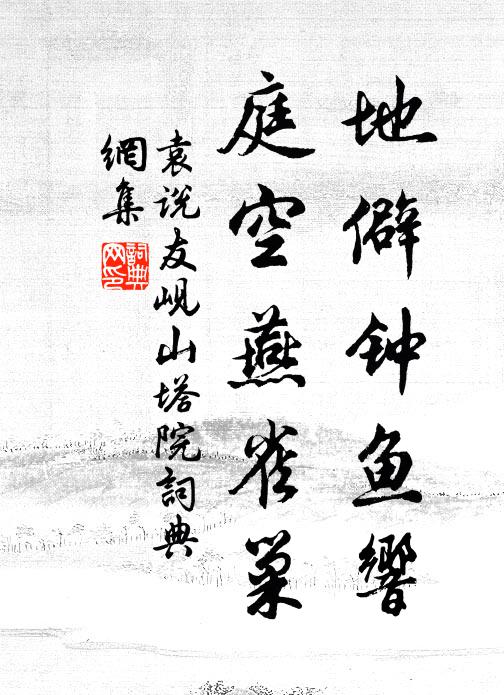 地僻钟鱼響
庭空燕雀巢
袁说友岘山塔院詞典
網集
詞典网印